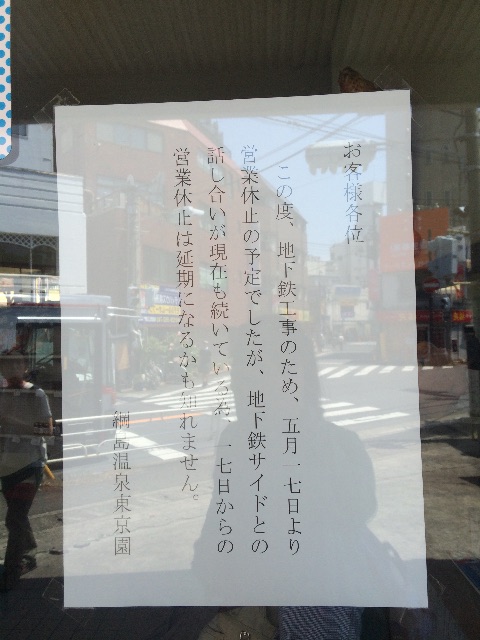 お客様各位
この度、地下鉄工事のため、五月一七日より
営業休止の予定でしたが、地下鉄サイドとの
話し合いが現在も続いている為、一七日からの
営業休止は延期になるかも知れません。
綱島温泉東京園